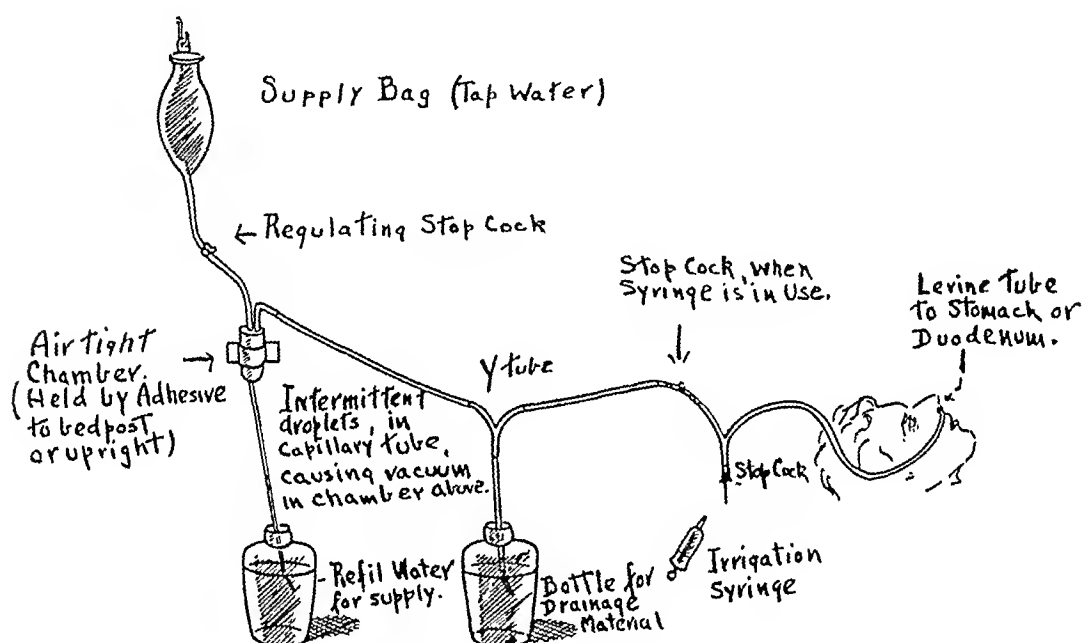 Supply Bag (Tap Water)
← Regulating Stop Cock
Stop Cock, when
Syringe is in Use.
Levine Tube
to Stomack or
Duodenum.
Air tight
Chamber.
(Held by Adhesive
to bedpost
or upright)
Y tube
Intermittent
droplets, in
capillary tube,
causing vacuum
in chamber above.
Stop Cock
Refil Water
for supply.
Bottle for
Drainage
Material
Irrigation
Syringe